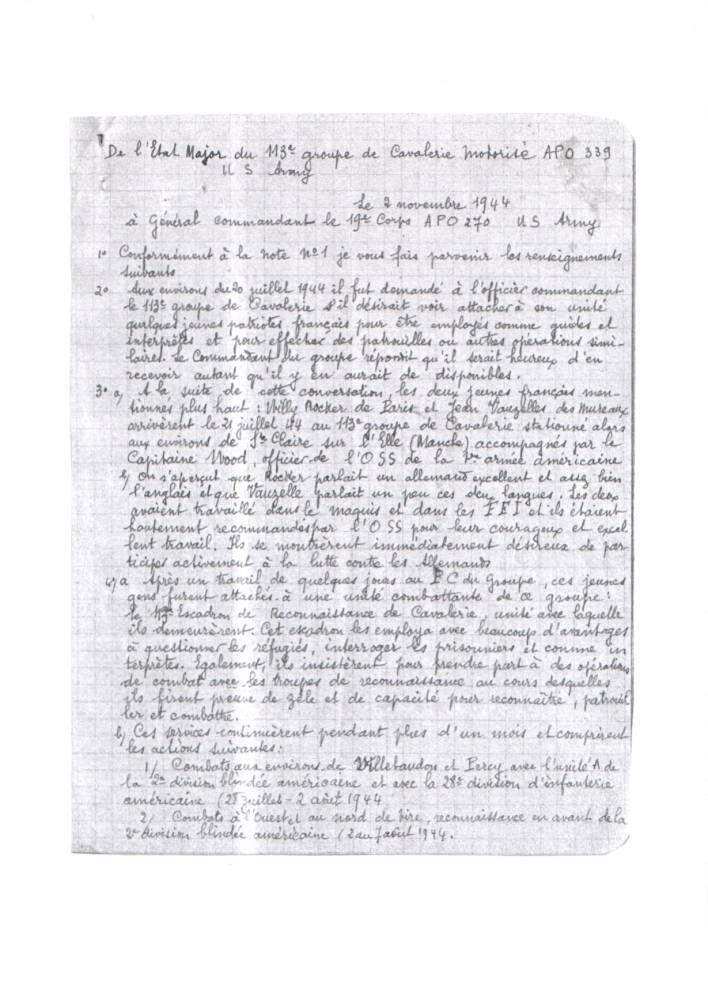 De l'Etat Major du 113e groupe de Cavalerie Motorisé APO 339
U S Army
Le 2 novembre 1944
à Général commandant le 19e Corps APO 270 U S Army
1° Conformément à la note N°1 je vous fais parvenir les renseignements
suivants
2° Aux environs du 20 juillet 1944 il fut demandé à l'officier commandant
le 113e groupe de Cavalerie s'il désirait voir attacher à son unité
quelques jeunes patriotes français pour être employés comme guides et
interprètes et pour effectuer des patrouilles ou autres opérations simi-
laires. Le Commandant du groupe répondit qu'il serait heureux d'en
recevoir autant qu'il y en aurait de disponibles.
3° a) A la suite de cette conversation, les deux jeunes français men-
tionnés plus haut : Willy Rocker de Paris et Jean Vauzelles des Mureaux
arrivèrent le 21 juillet 44 au 113e groupe de Cavalerie stationné alors
aux environs de Ste Claire sur l'Elle (Manche) accompagnés par le
Capitaine Wood, officier de l'OSS de la 1ère armée américaine
b) On s'aperçut que Rocker parlait un allemand excellent et assez bien
l'anglais et que Vauzelle parlait un peu ces deux langues. Les deux
avaient travaillé dans le maquis et dans les FFI et ils étaient
hautement recommandés par l'OSS pour leur courageux et excel
lent travail. Ils se montrèrent immédiatement désireux de par
ticiper activement à la lutte contre les Allemands
4) a Après un travail de quelques jours au PC du Groupe, ces jeunes
gens furent attachés à une unité combattante de ce groupe :
le 113e Escadron de Reconnaissance de Cavalerie, unité avec laquelle
ils demeurèrent. Cet escadron les employa avec beaucoup d'avantages
à questionner les réfugiés, interroger les prisonniers et comme in
terprètes. Egalement, ils insistèrent pour prendre part à des opérations
de combat avec les troupes de reconnaissance au cours desquelles
ils firent preuve de zèle et de capacité pour reconnaître, patrouil
ler et combattre.
b) Ces services continuèrent pendant plus d'un mois et comprirent
les actions suivantes :
1/ Combats aux environs de Villebaudon et Percy avec l'unité A de
la 2e division blindée américaine et avec la 28e division d'infanterie
américaine (28 juillet - 2 août 1944
2/ Combats à l'Ouest et au nord de Vire, reconnaissance en avant de la
2e division blindée américaine (2 au 7 août 1944.